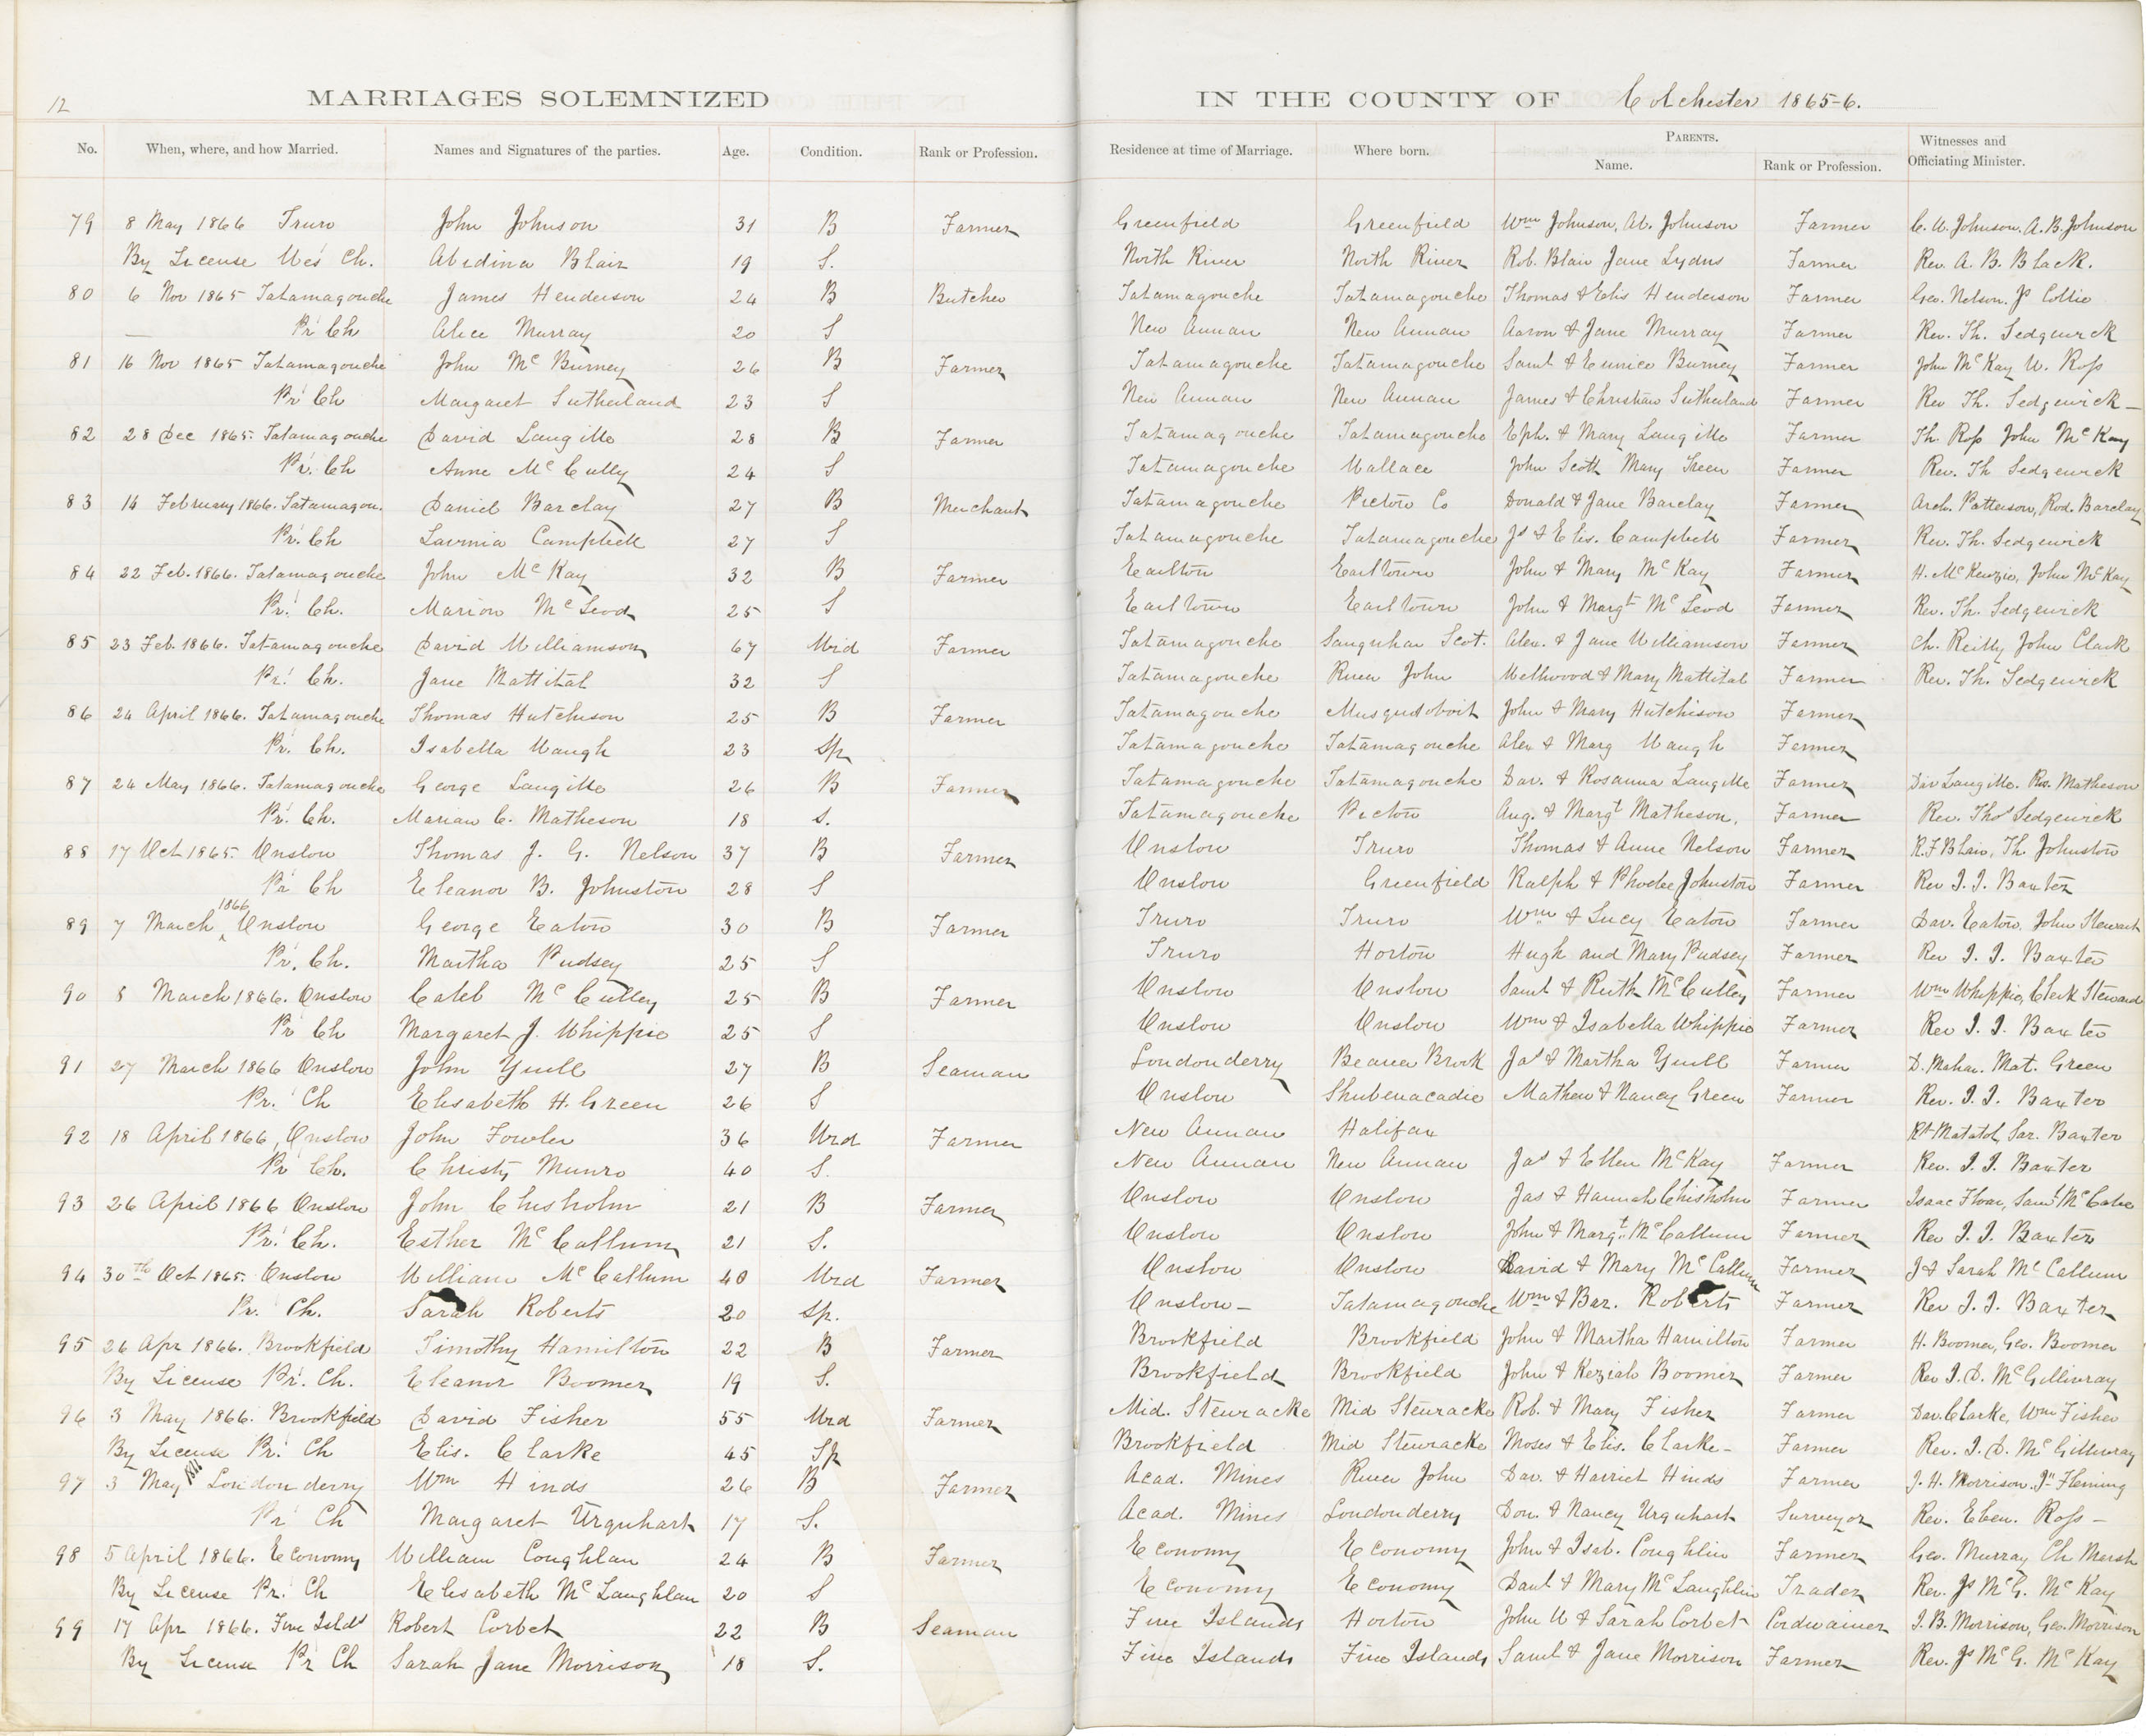 12
MARRIAGES SOLEMNIZED IN THE COUNTY OF Colchester 1865-6.
No. When, where, and how Married. Names and Signatures of the parties. Age. Condition. Rank or Profession. Residence at time of Marriage. Where born. PARENTS. Name. Rank or Profession. Witnesses and Officiating Minister.
79 8 May 1866 Truro John Johnson 31 B Farmer Greenfield Greenfield Wm Johnson, Johnson Farmer Johnson, A. B. Johnson
By License Ch. Blair 19 S. North River North River Rob. Blair Jane Farmer Rev. A. B. Black.
80 6 Nov 1865 Tatamagouche James Henderson 24 B Butcher Tatamagouche Tatamagouche Thomas & Elis Henderson Farmer Geo. Nelson, Js Collie
— Pr Ch Alice Murray 20 S New Annan New Annan Aaron & Jane Murray Farmer Rev. Th. Sedgewick
81 16 Nov 1865 Tatamagouche John McBurney 26 B Farmer Tatamagouche Tatamagouche Saml & Eunice Burney Farmer John McKay W. Ross
Pr Ch Margaret Sutherland 23 S New Annan New Annan James & Christian Sutherland Farmer Rev Th. Sedgewick —
82 28 Dec 1865. Tatamagouche David Langille 28 B Farmer Tatamagouche Tatamagouche Eph. & Mary Langille Farmer Th. Ross John McKay
Pr. Ch Anne McCully 24 S Tatamagouche Wallace John Scott Mary Farmer Rev. Th Sedgewick
83 14 February 1866. Tatamagou. Daniel Barclay 27 B Merchant Tatamagouche Pictou Co Donald & Jane Barclay Farmer Arch. Patterson, Rod. Barclay
Pr. Ch Lavinia Campbell 27 S Tatamagouche Tatamagouche Js & Elis. Campbell Farmer Rev. Th. Sedgewick
84 22 Feb. 1866. Tatamagouche John McKay 32 B Farmer Earlton Earltown John & Mary McKay Farmer H. McKenzie, John McKay
Pr. Ch. Marion McLeod 25 S Earltown Earltown John & Margt McLeod Farmer Rev. Th. Sedgewick
85 23 Feb. 1866. Tatamagouche David Williamson 67 Wid Farmer Tatamagouche Sanquhar Scot. Alex. & Jane Williamson Farmer Ch. Reilly John Clark
Pr. Ch. Jane Mattital 32 S Tatamagouche River John Wellwood & Mary Mattital Farmer Rev. Th. Sedgewick
86 24 April 1866. Tatamagouche Thomas Hutchison 25 B Farmer Tatamagouche Musquodoboit John & Mary Hutchison Farmer
Pr. Ch. Isabella Waugh 23 Sp Tatamagouche Tatamagouche Alex & Marg Waugh Farmer
87 24 May 1866. Tatamagouche George Langille 26 B Farmer Tatamagouche Tatamagouche Dav. & Rosanna Langille Farmer Dav Langille. Matheson
Pr. Ch. Marian C. Matheson 18 S. Tatamagouche Pictou Ang. & Margt Matheson, Farmer Rev. Thos Sedgewick
88 17 Oct 1865. Onslow Thomas J. G. Nelson 37 B Farmer Onslow Truro Thomas & Anne Nelson Farmer R. F Blair, Th. Johnston
Pr Ch Eleanor B. Johnston 28 S Onslow Greenfield Ralph & Phoebe Johnston Farmer Rev J. I. Baxter
89 7 March 1866 Onslow George Eaton 30 B Farmer Truro Truro Wm & Lucy Eaton Farmer Dav. Eaton, John Stewart
Pr. Ch. Martha Pudsey 25 S Truro Horton Hugh and Mary Pudsey Farmer Rev J. I. Baxter
90 8 March 1866. Onslow Caleb McCulley 25 B Farmer Onslow Onslow Saml & Ruth McCulley Farmer Wm Whippie,
Pr Ch Margaret J. Whippie 25 S Onslow Onslow Wm & Isabella Whippie Farmer Rev J. I. Baxter
91 27 March 1866 Onslow John Yuill 27 B Seaman Londonderry Beaver Brook Jas & Martha Yuill Farmer D. Mahar. Mat. Green
Pr. Ch Elisabeth H. Green 26 S Onslow Shubenacadie Mathew & Nancy Green Farmer Rev. J. I. Baxter
92 18 April 1866, Onslow John Fowler 36 Wrd Farmer New Annan Halifax Rt Matatol, Sar. Baxter
Pr Ch. Christy Munro 40 S. New Annan New Annan Jas & Ellen McKay Farmer Rev. J. I. Baxter
93 26 April 1866 Onslow John Chisholm 21 B Farmer Onslow Onslow Jas & Hannah Chisholm Farmer Isaac Saml McCabe
Pr. Ch. Esther McCallum 21 S. Onslow Onslow John & Margt. McCallum Farmer Rev J. I. Baxter
94 30th Oct 1865. Onslow William McCallum 40 Wrd Farmer Onslow Onslow David & Mary McCallum Farmer J & Sarah McCallum
Pr. Ch. Sarah Roberts 20 Sp. Onslow — Tatamagouche Wm & Bar. Roberts Farmer Rev J. I. Baxter
95 26 Apr 1866. Brookfield Timothy Hamilton 22 B Farmer Brookfield Brookfield John & Martha Hamilton Farmer H. Boomer, Geo. Boomer
By License Pr. Ch. Eleanor Boomer 19 S. Brookfield Brookfield John & Keziah Boomer Farmer Rev J. D. McGillivray
96 3 May 1866. Brookfield David Fisher 55 Wrd Farmer Mid. Steuracke Mid Steuracke Rob. & Mary Fisher Farmer Dav. Clarke, Wm Fisher
By License Pr. Ch Elis. Clarke 45 Sp Brookfield Mid Steuracke Moses & Elis. Clarke — Farmer Rev. J. D. McGillivray
97 3 May 1866 Londonderry Wm Hinds 26 B Farmer Acad. Mines River John Dav. & Harriet Hinds Farmer J. H. Morrison. Fleming
Pr Ch Margaret Urquhart 17 S. Acad. Mines Londonderry Don. & Nancy Urquhart Surveyor Rev. Eben. Ross —
98 5 April 1866. Economy William Coughlan 24 B Farmer Economy Economy John & Isab. Coughlin Farmer Geo. Murray Ch Marsh
By License Pr. Ch Elisabeth McLaughlan 20 S Economy Economy Danl & Mary McLaughlin Trader Rev. Js McG. McKay
99 17 Apr 1866. Five Islds Robert Corbet 22 B Seaman Five Islands Horton John W & Sarah Corbet Cordwainer J. B. Morrison, Geo. Morrison
By License Pr Ch Sarah Jane Morrison 18 S. Five Islands Five Islands Saml & Jane Morrison Farmer Rev. Js McG. McKay